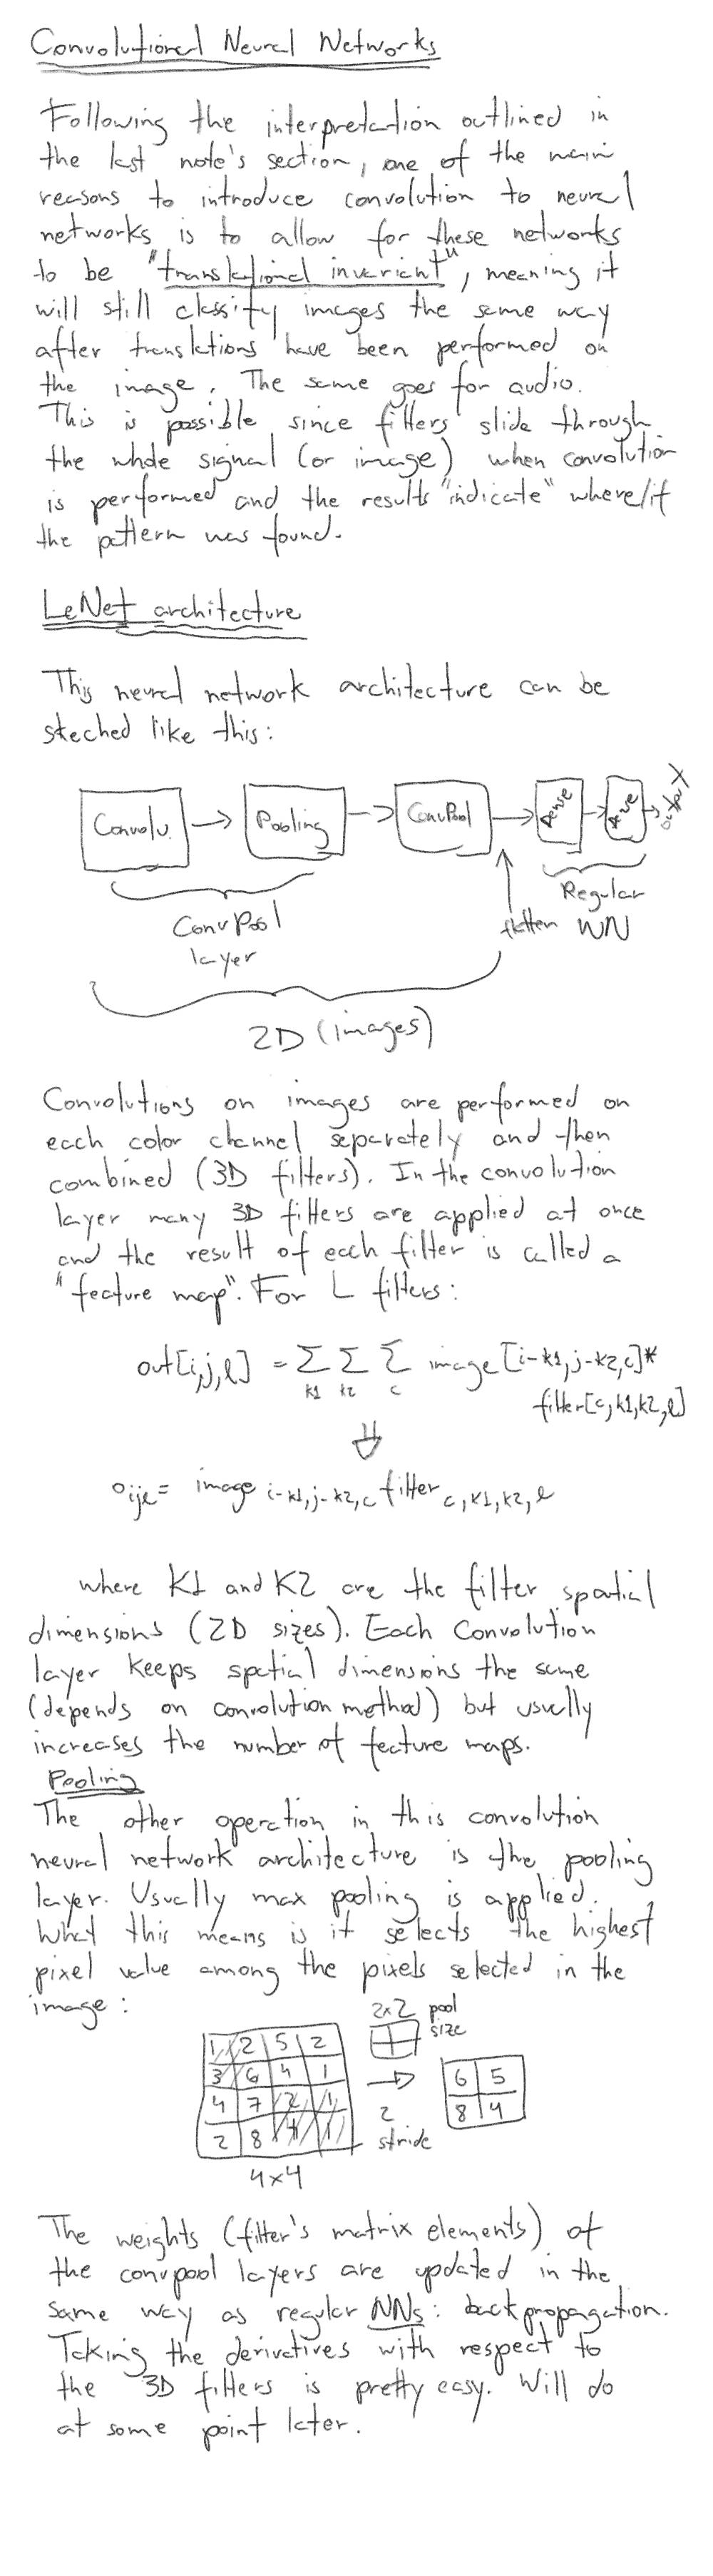 Convolutional Neural Networks
Following the interpretation outlined in
the last note's section, one of the main
reasons to introduce convolution to neural
networks is to allow for these networks
to be "translational invariant", meaning it
will still classify images the same way
after translations have been performed on
the image. The same goes for audio.
This is possible since filters slide through
the whole signal (or image) when convolution
is performed and the results "indicate" where/if
the pattern was found.
LeNet architecture
This neural network architecture can be
steched like this:
Convolu. → Pooling → ConvPool → Dense → Dense → output
ConvPool
layer
flatten
Regular
NN
2D (images)
Convolutions on images are performed on
each color channel separately and then
combined (3D filters). In the convolution
layer many 3D filters are applied at once
and the result of each filter is called a
"feature map". For L filters:
out[i,j,l] = Σ Σ Σ image[i-k1,j-k2,c]*
k1 k2 c
filter[c,k1,k2,l]
⇓
o ijl = image i-k1,j-k2,c filter c,k1,k2,l
where K1 and K2 are the filter spatial
dimensions (2D sizes). Each Convolution
layer keeps spatial dimensions the same
(depends on convolution method) but usually
increases the number of feature maps.
Pooling
The other operation in this convolution
neural network architecture is the pooling
layer. Usually max pooling is applied.
What this means is it selects the highest
pixel value among the pixels selected in the
image:
2x2 pool
size
1 2 5 2
3 6 4 1
4 7 2 1
2 8 4 1
4x4
→
2
stride
6 5
8 4
The weights (filter's matrix elements) of
the convpool layers are updated in the
same way as regular NNs: backpropagation.
Taking the derivatives with respect to
the 3D filters is pretty easy. Will do
at some point later.